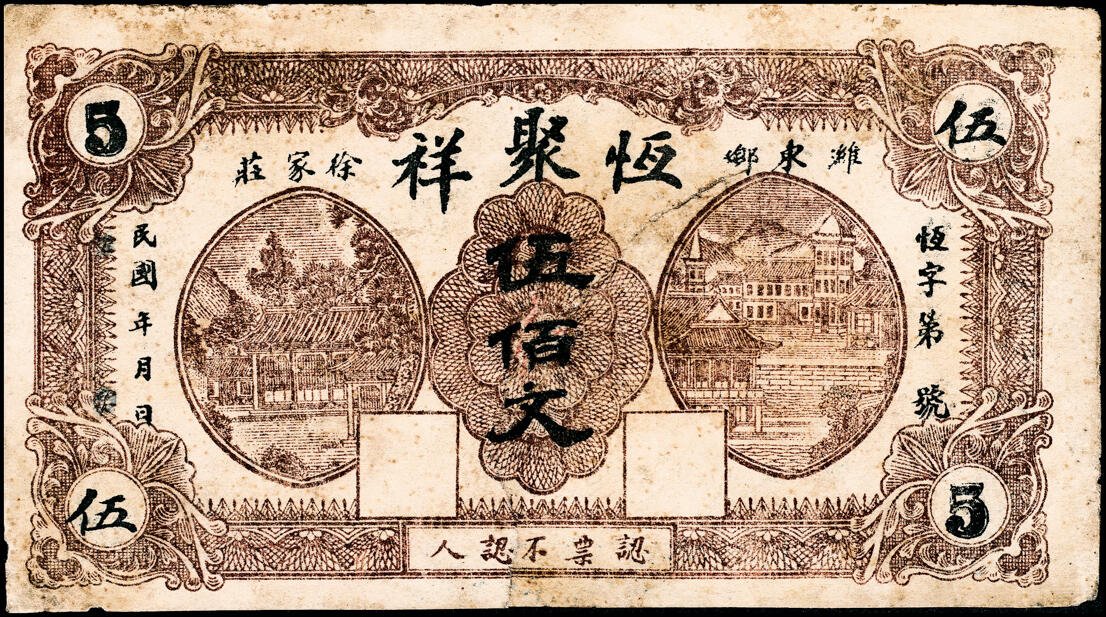 伍
5
濰東鄉
恆聚祥
徐家莊
恆字第 號
伍佰文
民國 年 月 日
5
伍
認票不認人